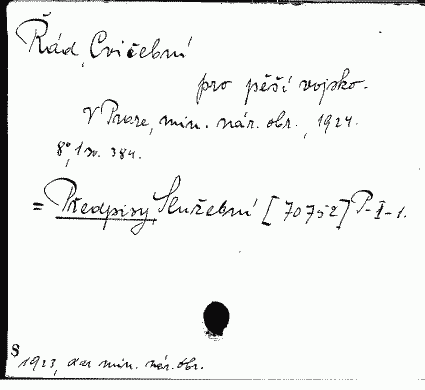 Řád, Cvičební
pro pěší vojsko.
V Praze, min. nár. obr., 1924.
8°, 1 sv. 384.
= Předpisy Služební [70752] P-I-1.
§
1923, dar min. nár. obr.